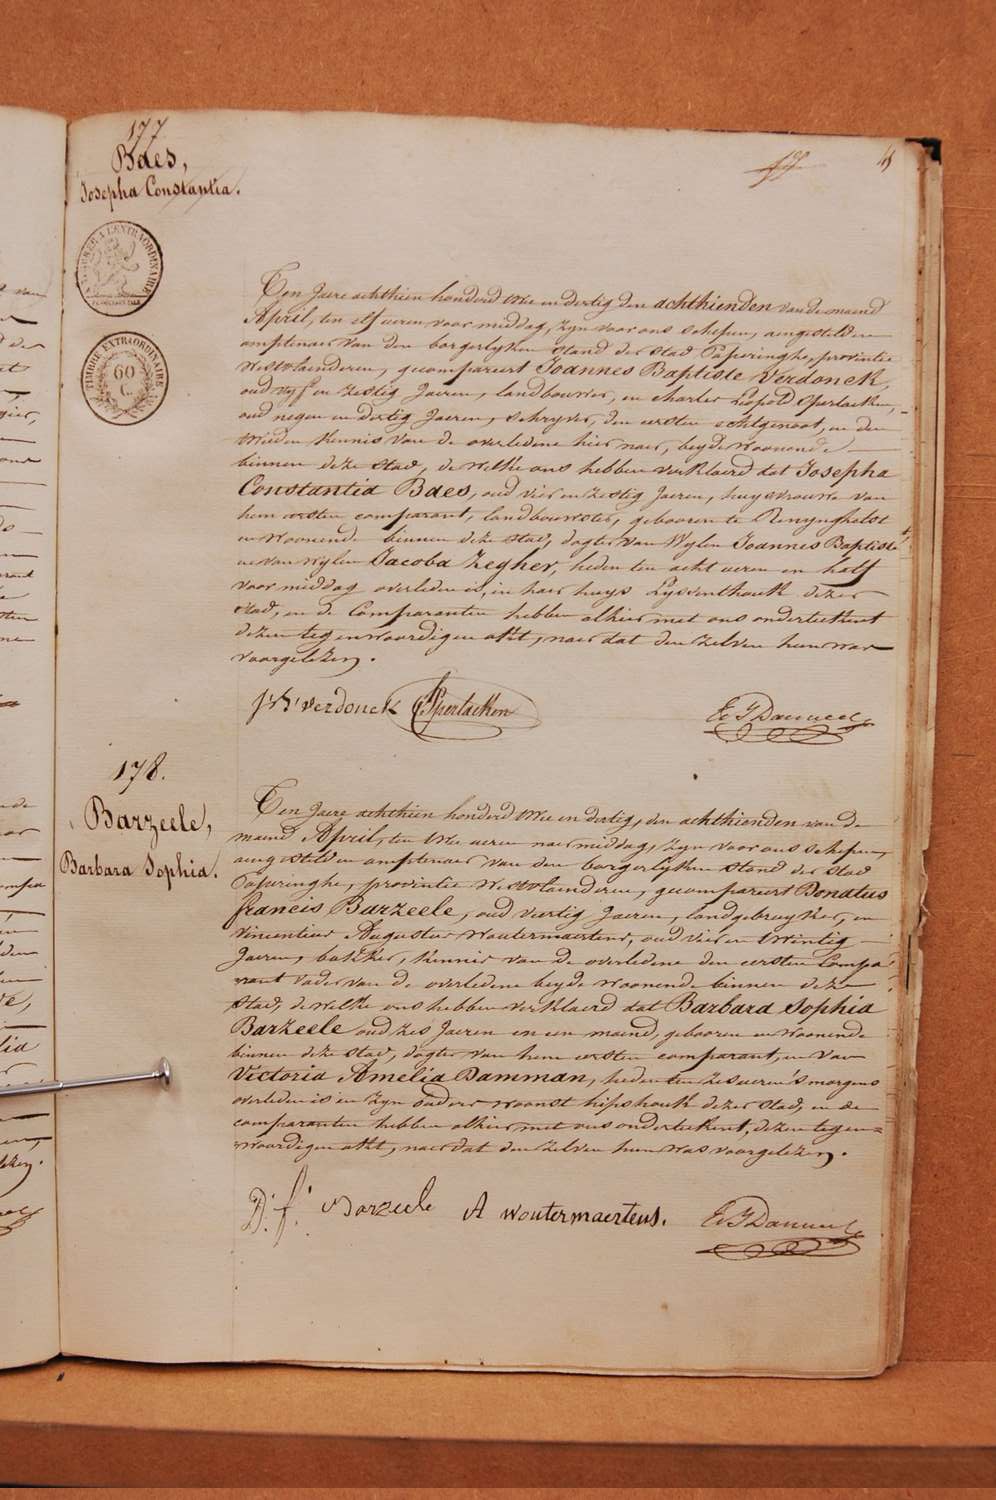 177
Baes,
Josepha Constantia.
TIMBRE EXTRAORDINAIRE
60
C
Ten Jaere achthien honderd twee en dertig den achthienden van de maend
April, ten elf ueren voor middag, zyn voor ons schepen, aengestelden
amptenaer van den borgerlyken stand der stad Poperinghe, provintie
Westvlaenderen, gecompareert Joannes Baptiste Verdonck,
oud vyf en zestig Jaeren, landbouwer, en charles Leopold Sperlaeken,
oud negen en dertig Jaeren, schryver, den eersten echtgenoot, en den
tweeden kennis van de overledene hier naer, beyde woonende
binnen deze stad, de welke ons hebben verklaerd dat Josepha
Constantia Baes, oud vier en zestig Jaeren, huysvrouwe van
hem eersten comparant, landbouwster, gebooren te Renynghelst
en woonende binnen deze stad, dogter van Wylen Joannes Baptiste
en van wylen Jacoba Zegher, heden ten acht ueren en half
voor middag overleden is, in haer huys Lyssenthouk dezer
stad, en de Comparanten hebben alhier met ons onderteekent
dezen tegenwoordigen akt, naer dat den zelven hun was
voorgelezen.
J: B: verdonck CSperlaeken
178.
Barzeele,
Barbara Sophia.
Ten Jaere achthien honderd twee en dertig, den achthienden van de
maend April, ten twee ueren naer middag, zyn voor ons schepen,
aengestelden amptenaer van den borgerlyken stand der stad
Poperinghe, provintie Westvlaenderen, gecompareert Donatus
francis Barzeele, oud veertig Jaeren, landgebruyker, en
Vincentius Augustus Woutermaertens, oud vier en twintig
Jaeren, bakker, kennis van de overledene den eersten Compa
rant vader van de overledene beyde woonende binnen deze
stad, de welke ons hebben verklaerd dat Barbara Sophia
Barzeele oud zes Jaeren en een maend, gebooren en woonende
binnen deze stad, dogter van hem eersten comparant, en van
Victoria Amelia Damman, heden ten zes ueren 's morgens
overleden is in zyn ouders woonst hipshouk dezer stad, en de
comparanten hebben alhier met ons onderteekent, dezen tegen=
woordigen akt, naer dat den zelven hun was voorgelezen.
D: f: Barzeele A Woutermaertens.